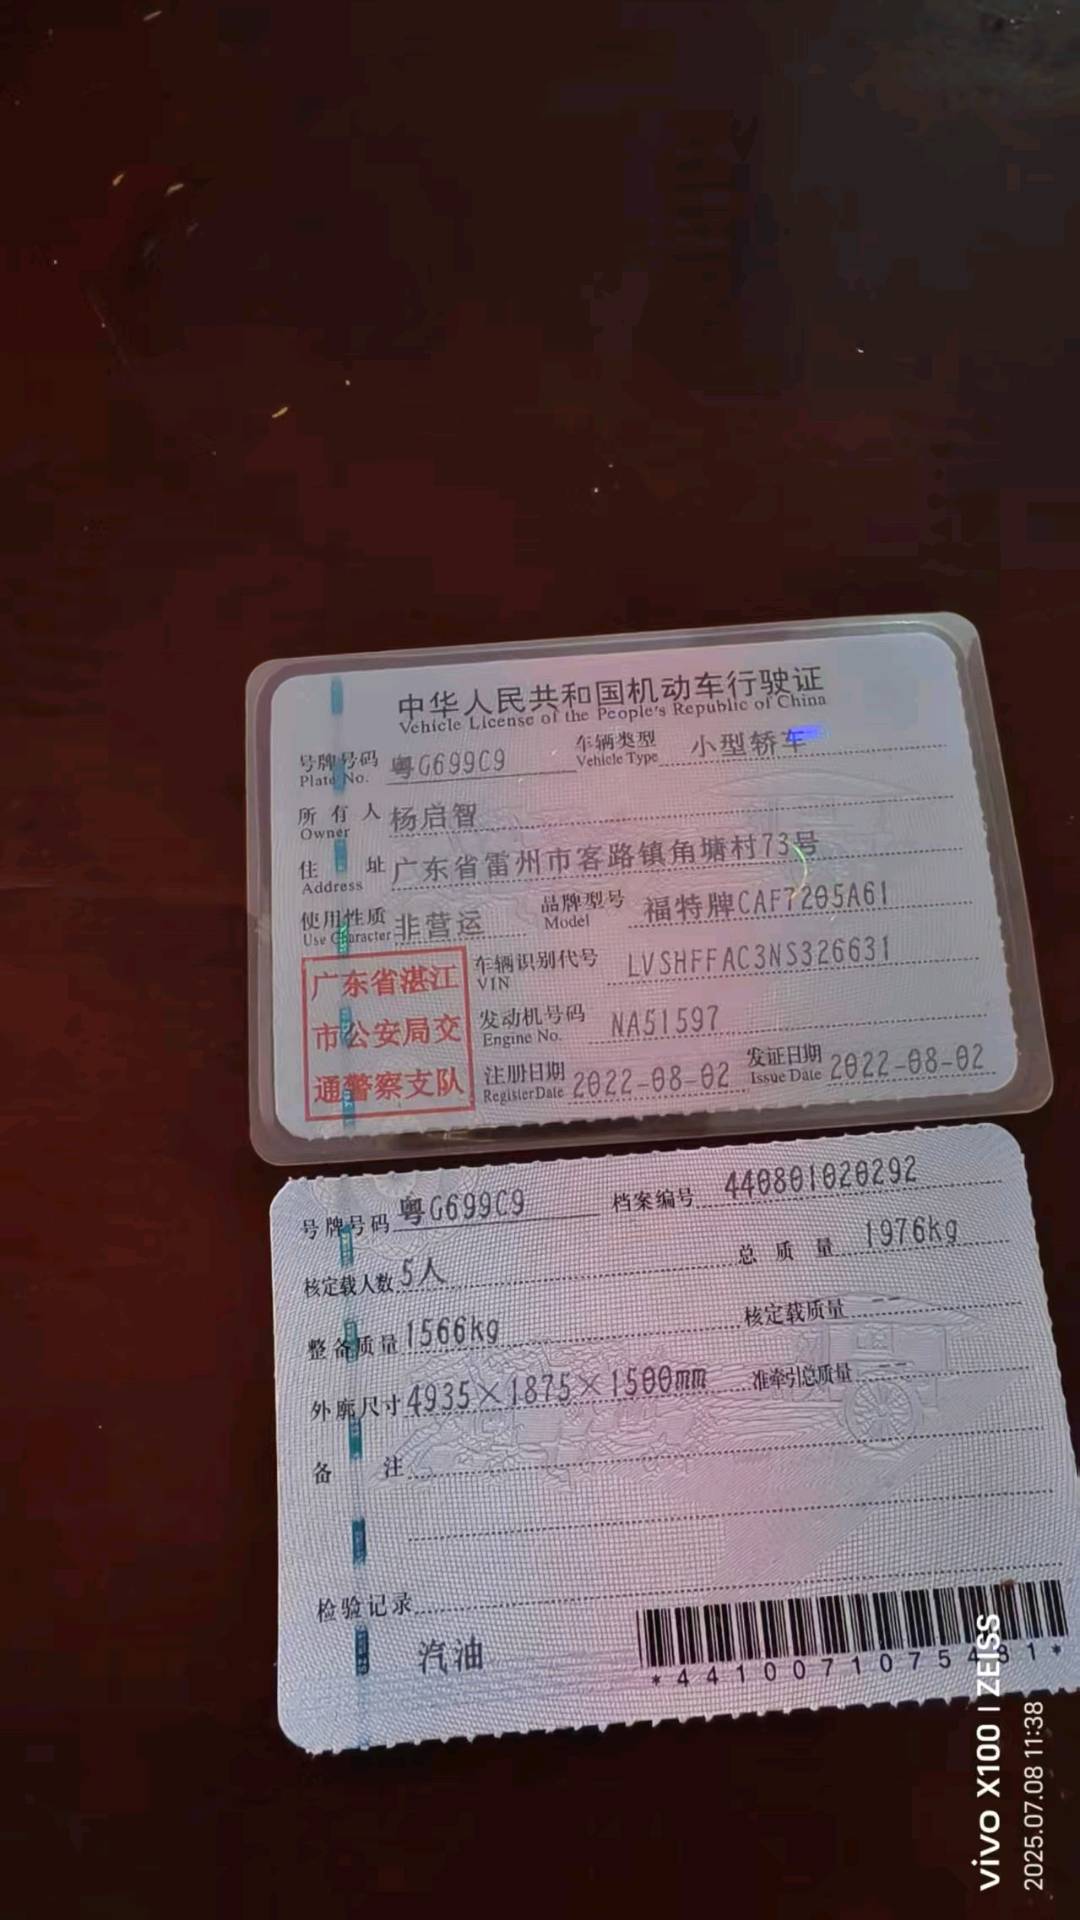 中华人民共和国机动车行驶证
Vehicle License of the People's Republic of China
号牌号码 粤G699C9 车辆类型 小型轿车
Plate No. Vehicle Type
所有人 杨启智
Owner
住址 广东省雷州市客路镇角塘村73号
Address
使用性质 非营运 品牌型号 福特牌CAF7205A61
Use Character Model
广东省湛江
市公安局交
通警察支队
车辆识别代号 LVSHFFAC3NS326631
VIN
发动机号码 NA51597
Engine No.
注册日期 2022-08-02 发证日期 2022-08-02
Register Date Issue Date
号牌号码 粤G699C9 档案编号 440801020292
核定载人数 5人 总质量 1976kg
整备质量 1566kg 核定载质量 --
外廓尺寸 4935×1875×1500mm 准牵引总质量 --
备注
检验记录
汽油
*4410071075431*
vivo X100 | ZEISS
2025.07.08 11:38